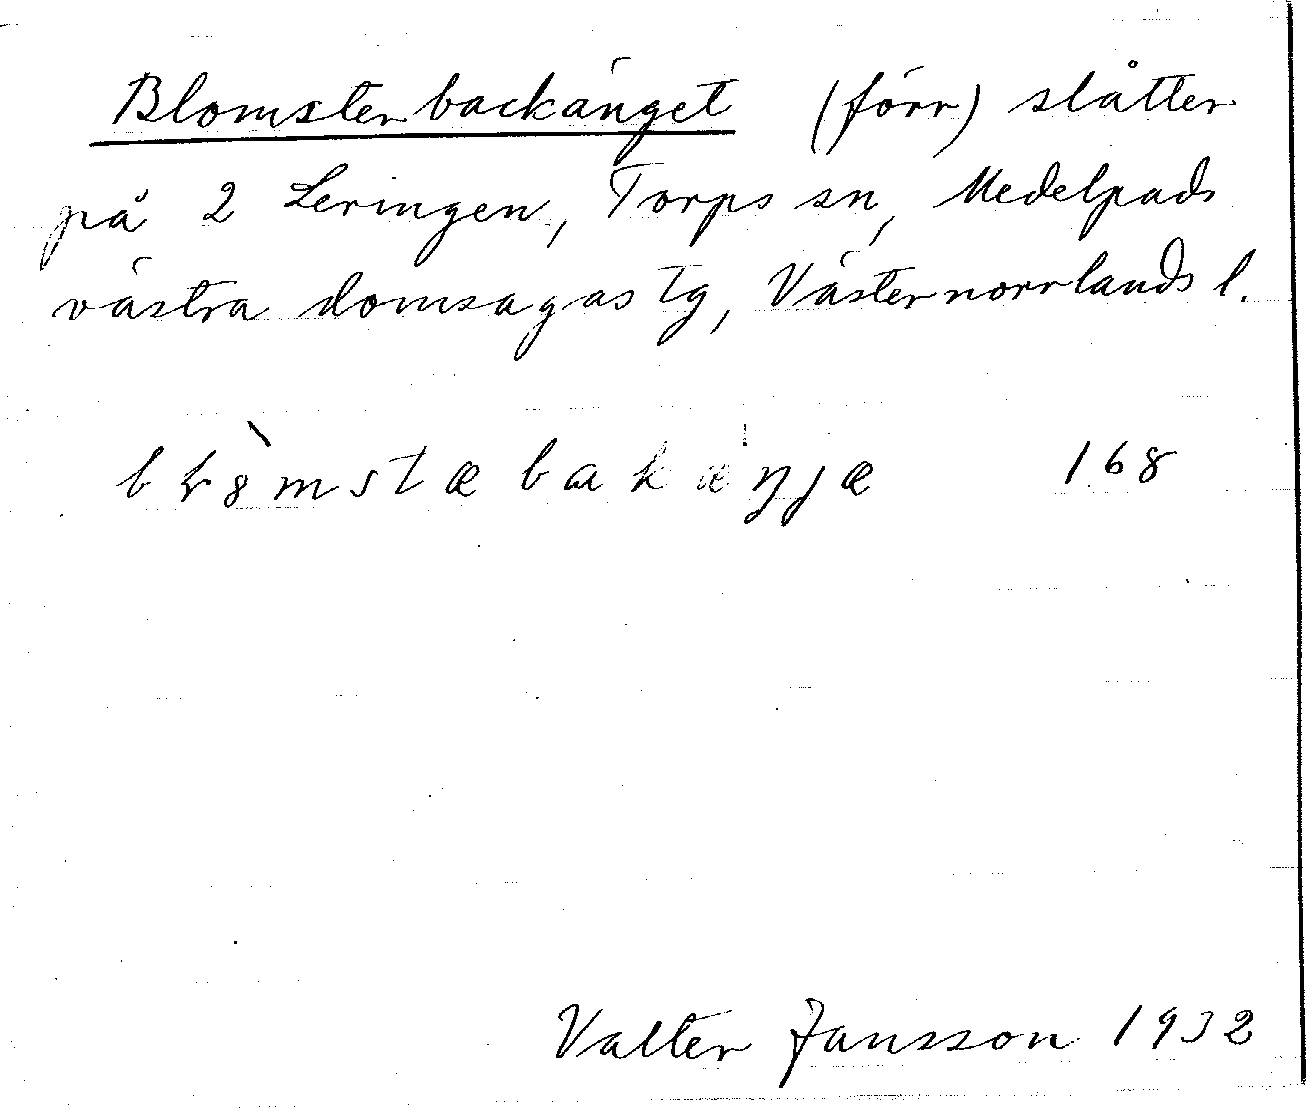 Blomsterbackänget (förr) slåtter
på 2 Leringen, Torps sn, Medelpads
västra domsagas tg, Västernorrlands l.
168
Valter Jansson 1932